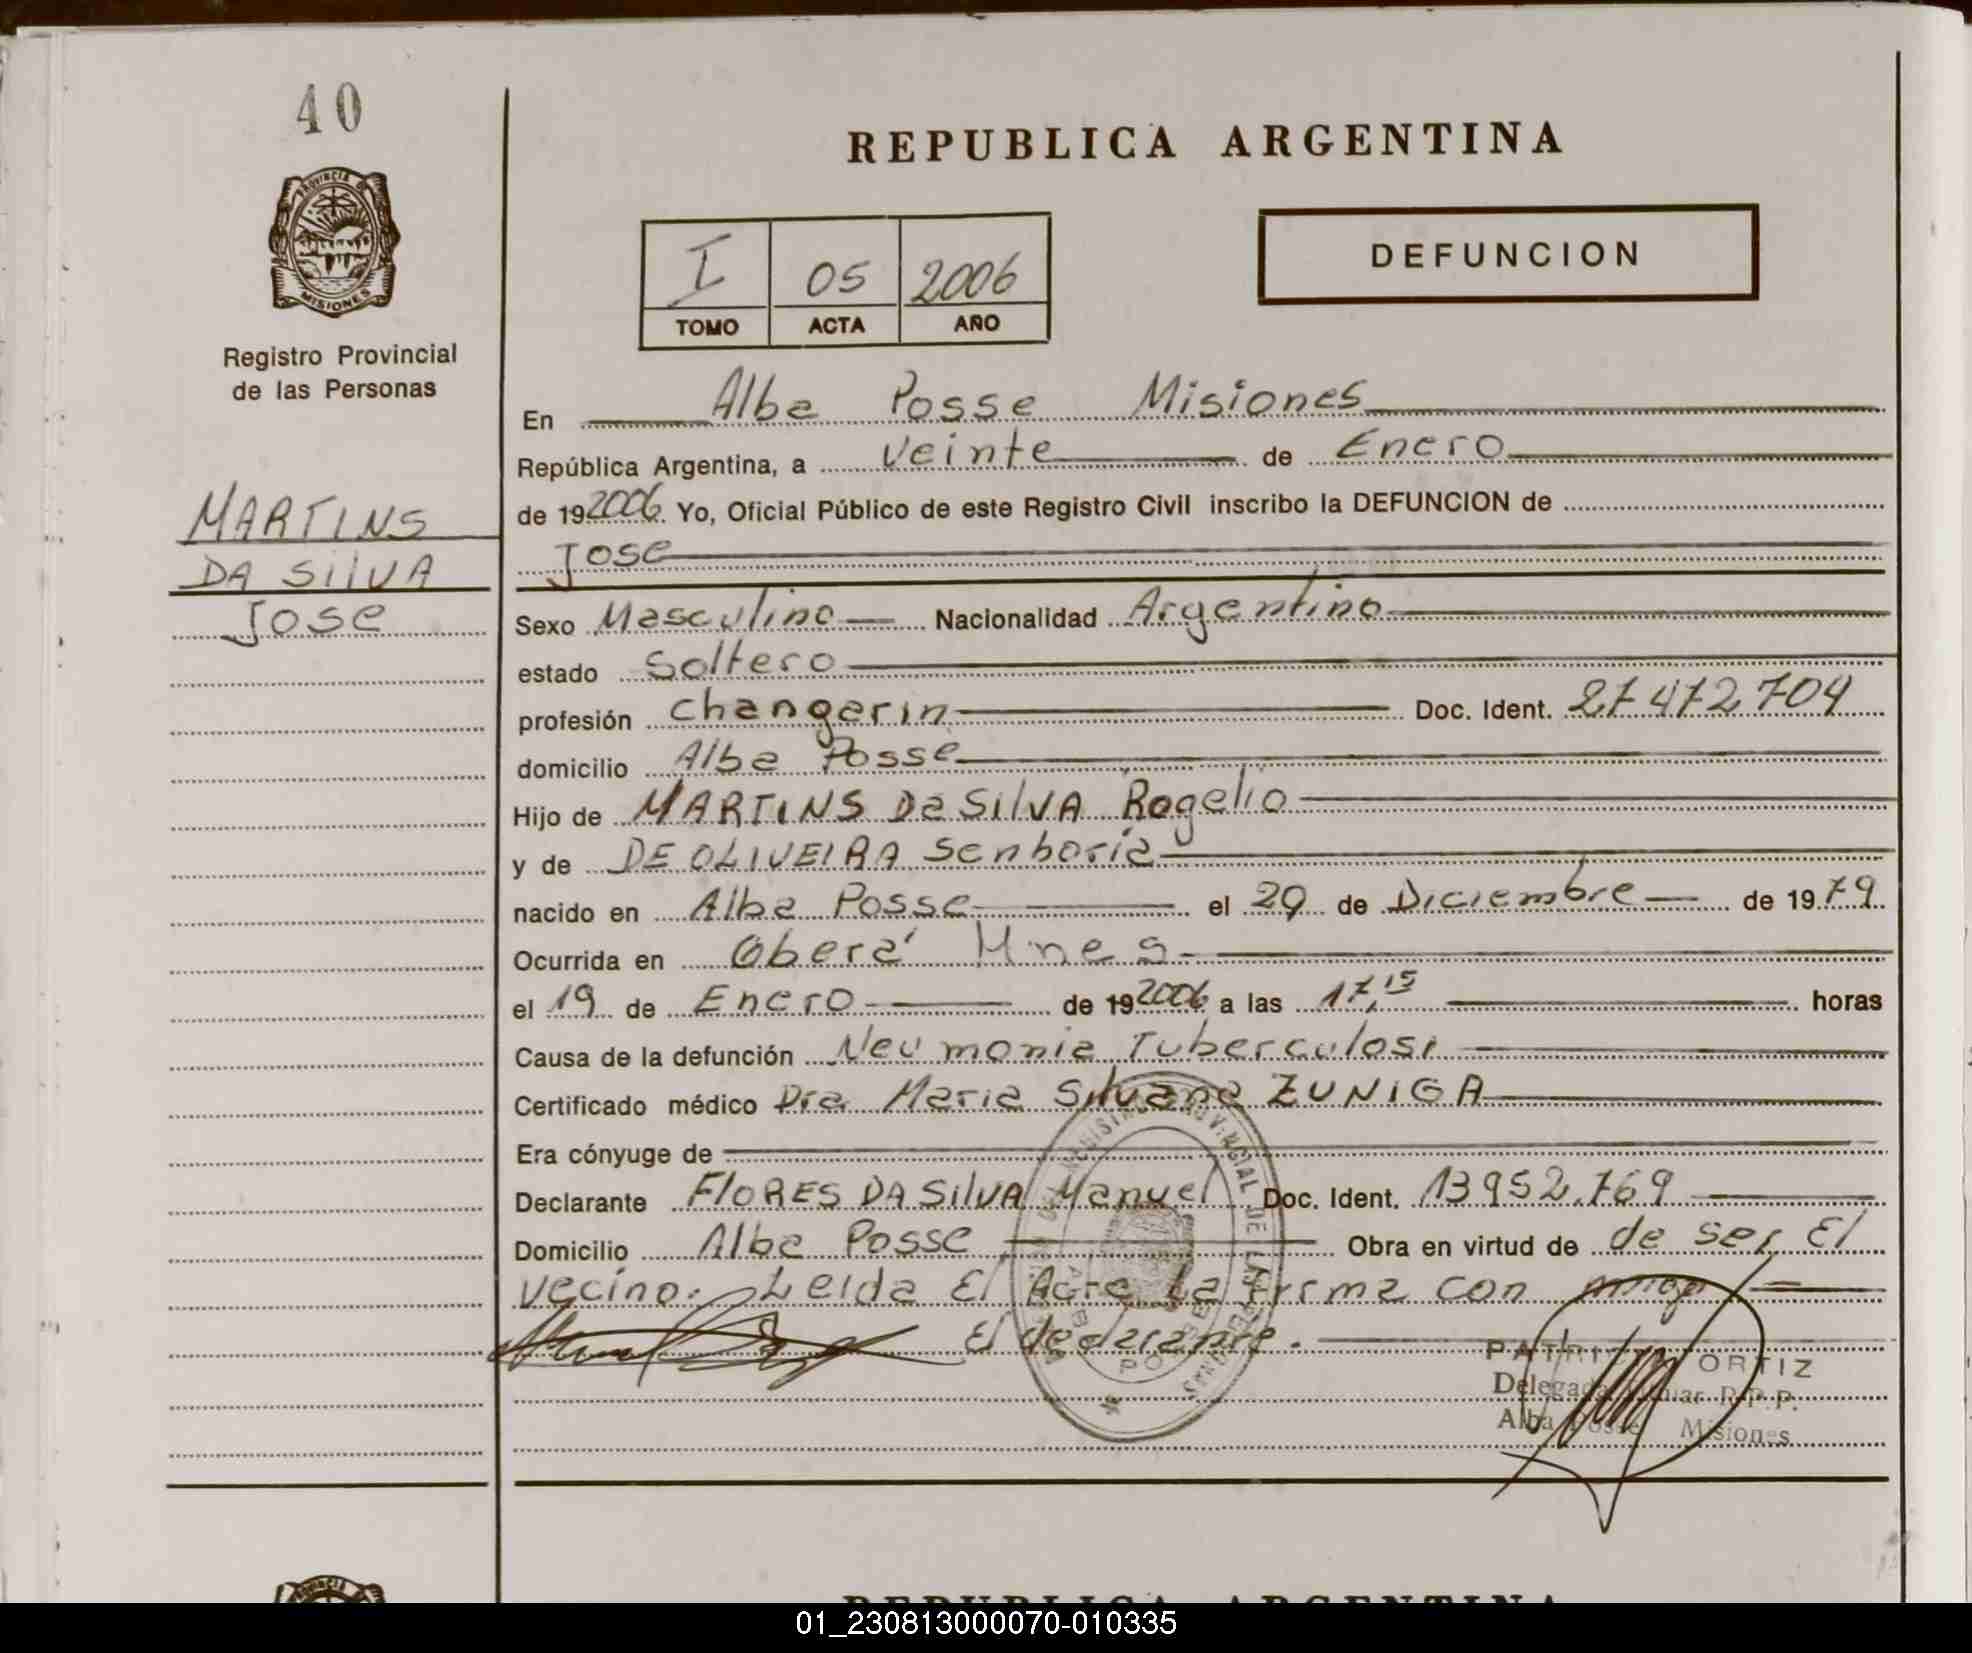 40
REPUBLICA ARGENTINA
PROVINCIA DE
MISIONES
DEFUNCION
I 05 2006
TOMO ACTA AÑO
Registro Provincial
de las Personas
MARTINS
DA SilVA
Jose
En Alba Posse Misiones
República Argentina, a veinte de Enero
de 19 2006 Yo, Oficial Público de este Registro Civil inscribo la DEFUNCION de
Jose
Sexo Masculino Nacionalidad Argentino
estado Soltero
profesión changarin Doc. Ident. 27 472 704
domicilio Alba Posse
Hijo de MARTINS Da SilVA Rogelio
y de DE OLIVEIRA Senhoria
nacido en Alba Posse el 29 de Diciembre de 1979
Ocurrida en Oberá Mnes
el 19 de Enero de 19 2006 a las 17,15 horas
Causa de la defunción Neumonia Tuberculosi
Certificado médico Dra Maria Silvana ZUNIGA
Era cónyuge de
Declarante FlORES DA SilVA Manuel Doc. Ident. 13952.769
Domicilio Alba Posse Obra en virtud de de ser El
vecino. Leida El Acta La Firma con migo
El declarante.
ORTIZ
Alba Posse Misiones
REPUBLICA ARGENTINA
01_230813000070-010335